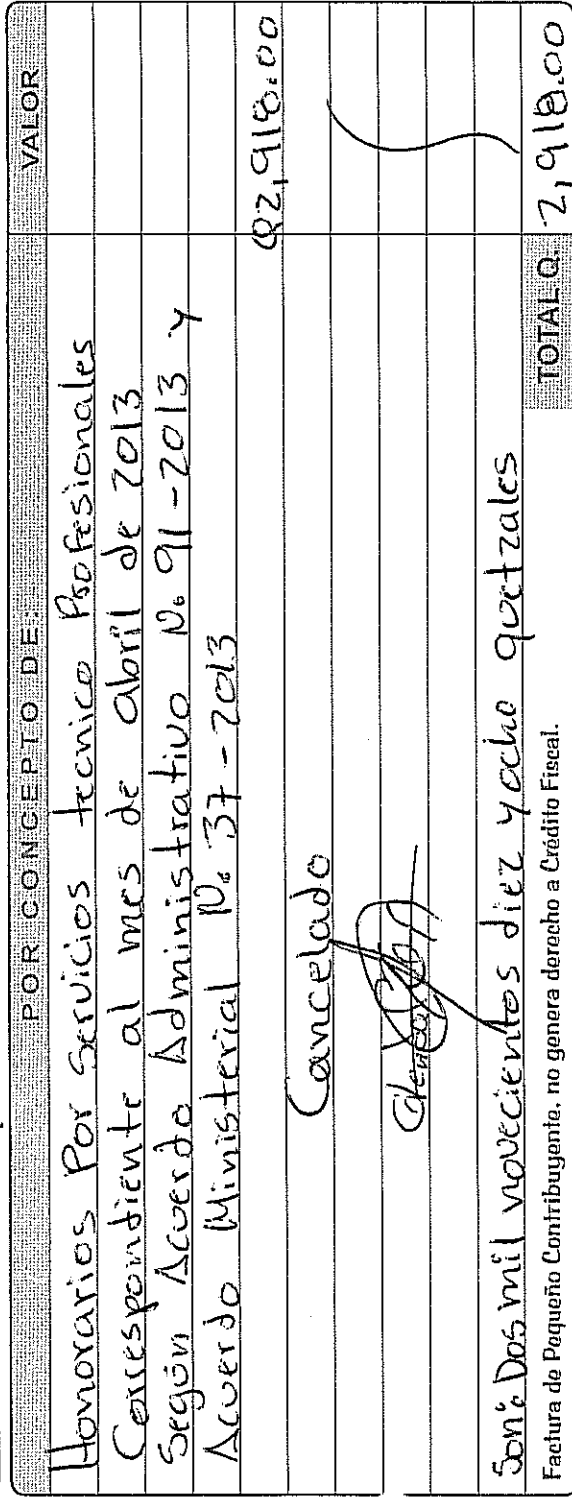 POR CONCEPTO DE: VALOR
Honorarios Por Servicios tecnico Profesionales
Correspondiente al mes de abril de 2013
Según Acuerdo Administrativo No 91-2013 y
Acuerdo Ministerial No 37-2013
Q2,918.00
Cancelado
Son: Dos mil novecientos diez y ocho quetzales
TOTAL Q. 2,918.00
Factura de Pequeño Contribuyente, no genera derecho a Crédito Fiscal.